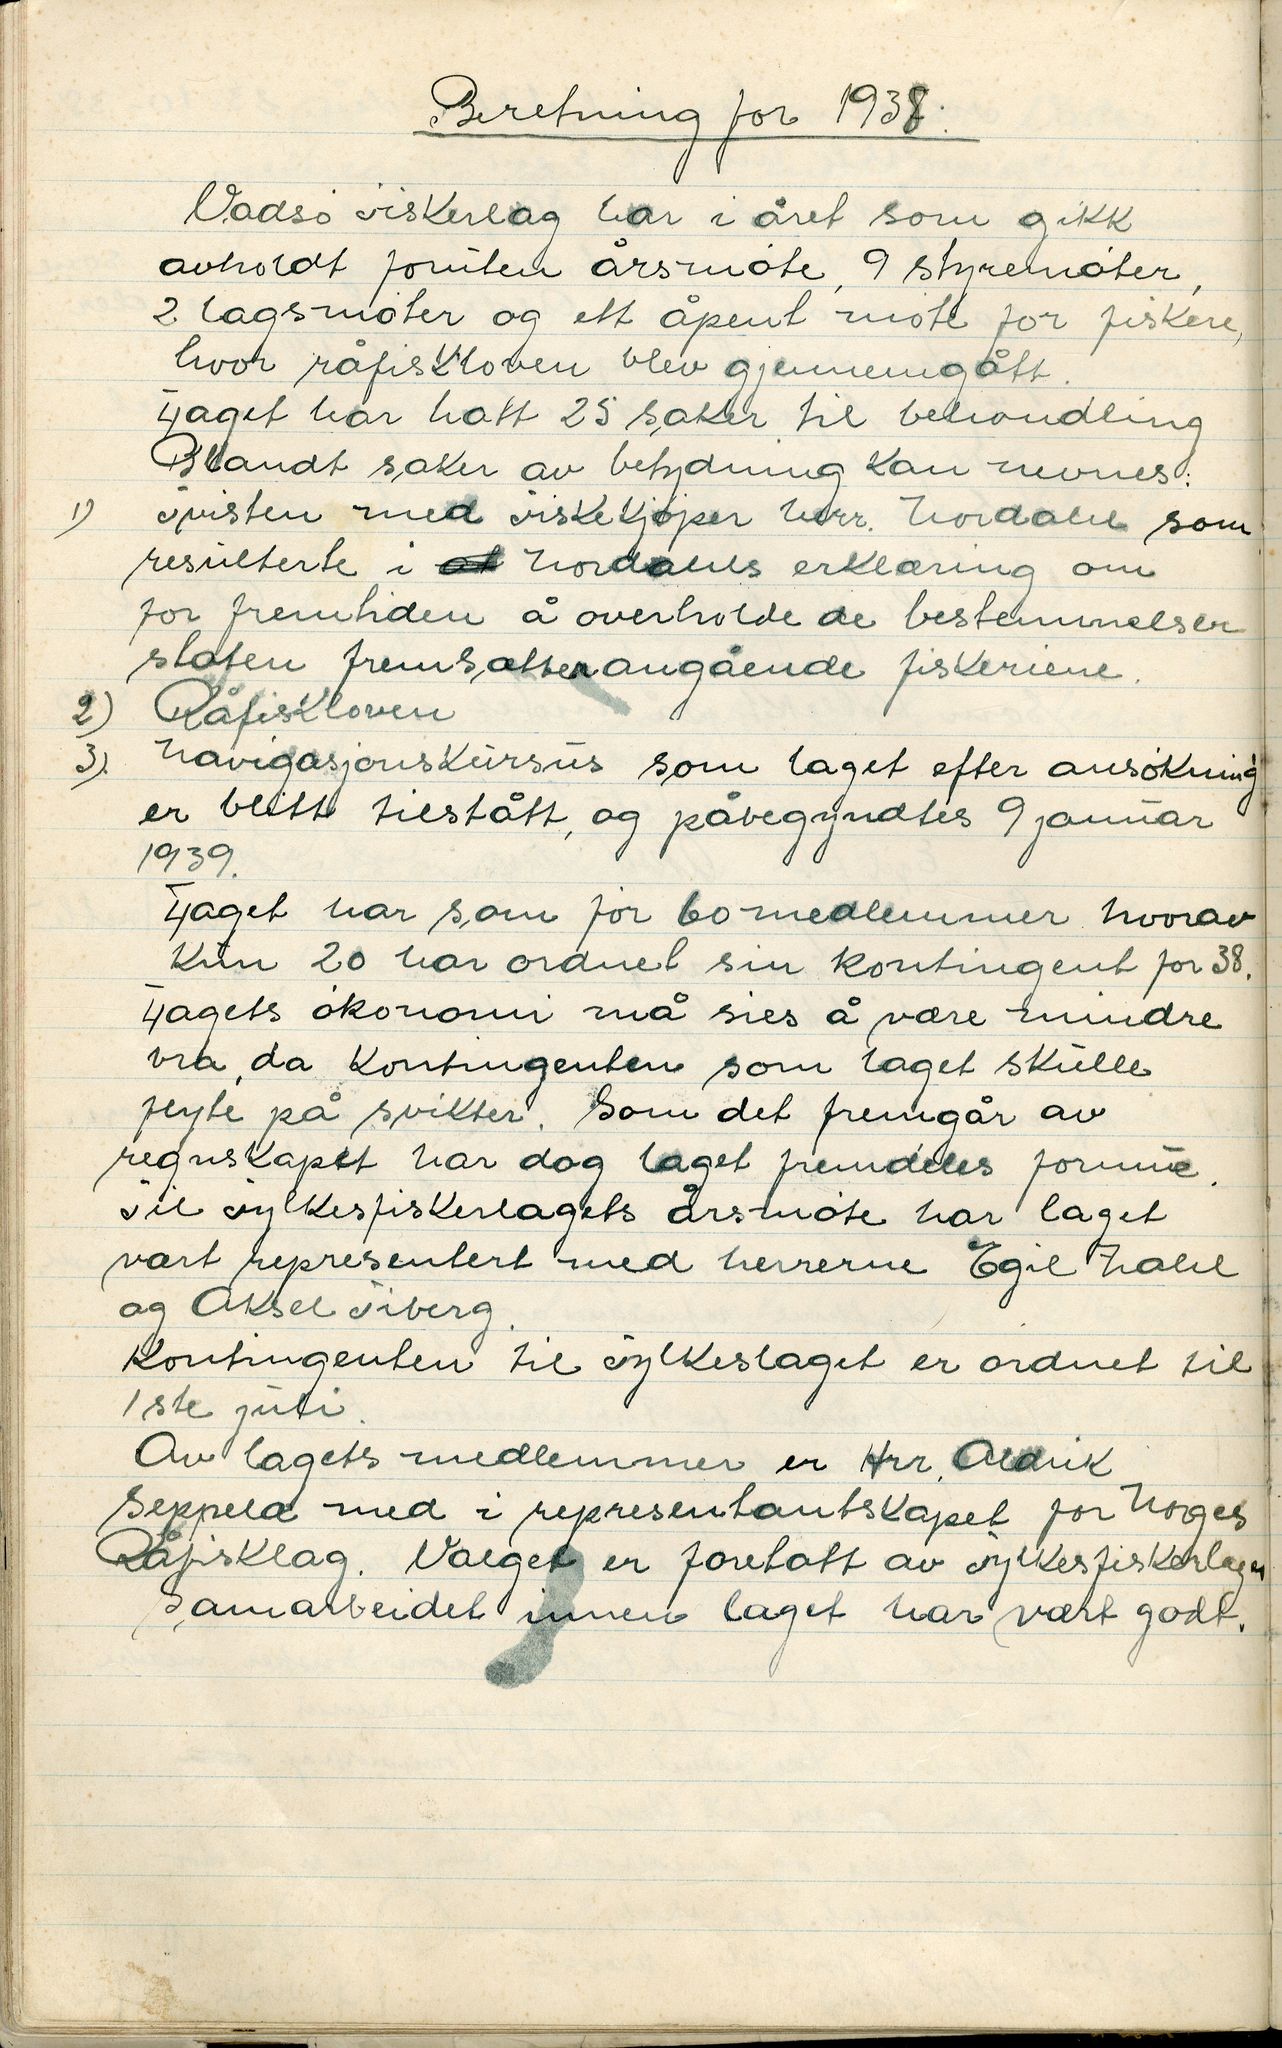 Beretning for 1938.
Vadsö Fiskerlag har i året som gikk
avholdt foruten årsmöte, 9 styremöter,
2 lagsmöter og ett åpent möte for fiskere,
hvor råfiskloven blev gjennemgått.
Laget har hatt 25 saker til behandling
Blandt saker av betydning kan nevnes:
1) Tvisten med Fiskekjöper herr. Nordahl som
resulterte i Nordahls erklæring om
for fremtiden å overholde de bestemmelser
staten fremsætter angående fiskeriene.
2) Råfiskloven
3) Navigasjonskursus som laget efter ansökning
er blitt tilstått, og påbegyndtes 9 januar
1939.
Laget har som för 60 medlemmer hvorav
kun 20 har ordnet sin kontingent for 38.
Lagets ökonomi må sies å være mindre
bra, da kontingenten som laget skulle
flyte på svikter. Som det fremgår av
regnskapet har dog laget fremdeles formue.
Til Fylkesfiskerlagets Årsmöte har laget
vært representert med herrerne Egil Dahl
og Aksel Fiberg.
Kontingenten til Fylkeslaget er ordnet til
1ste juli.
Av lagets medlemmer er Hrr. Aldrik
Seppela med i representantskapet for Norges
Råfisklag. Valget er foretatt av Fylkesfiskerlaget
Samarbeidet innen laget har vært godt.